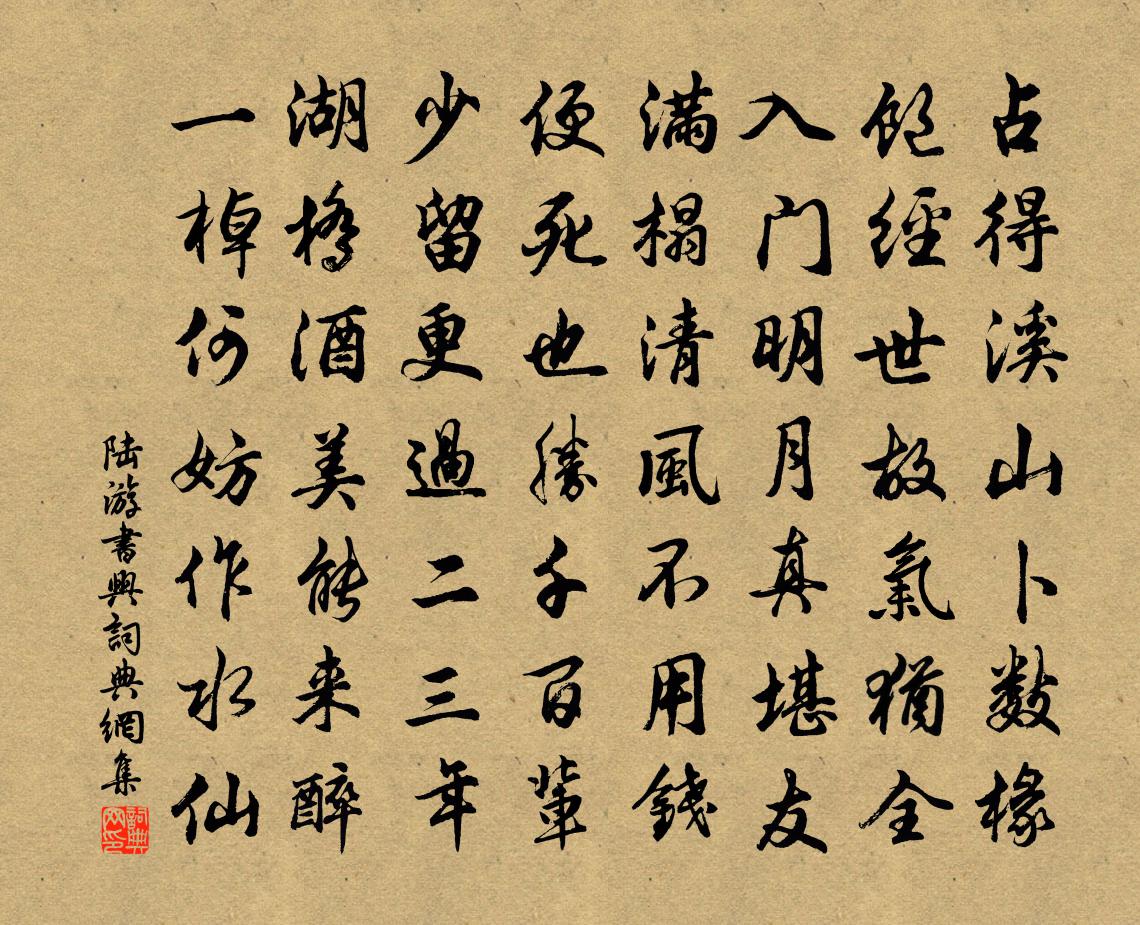 占得溪山卜数椽
飽經世故氣猶全
入门明月真堪友
满榻清風不用錢
便死也勝千百輩
少留更過二三年
湖橋酒美能来醉
一棹何妨作水仙
陆游書興詞典網集
詞典网印